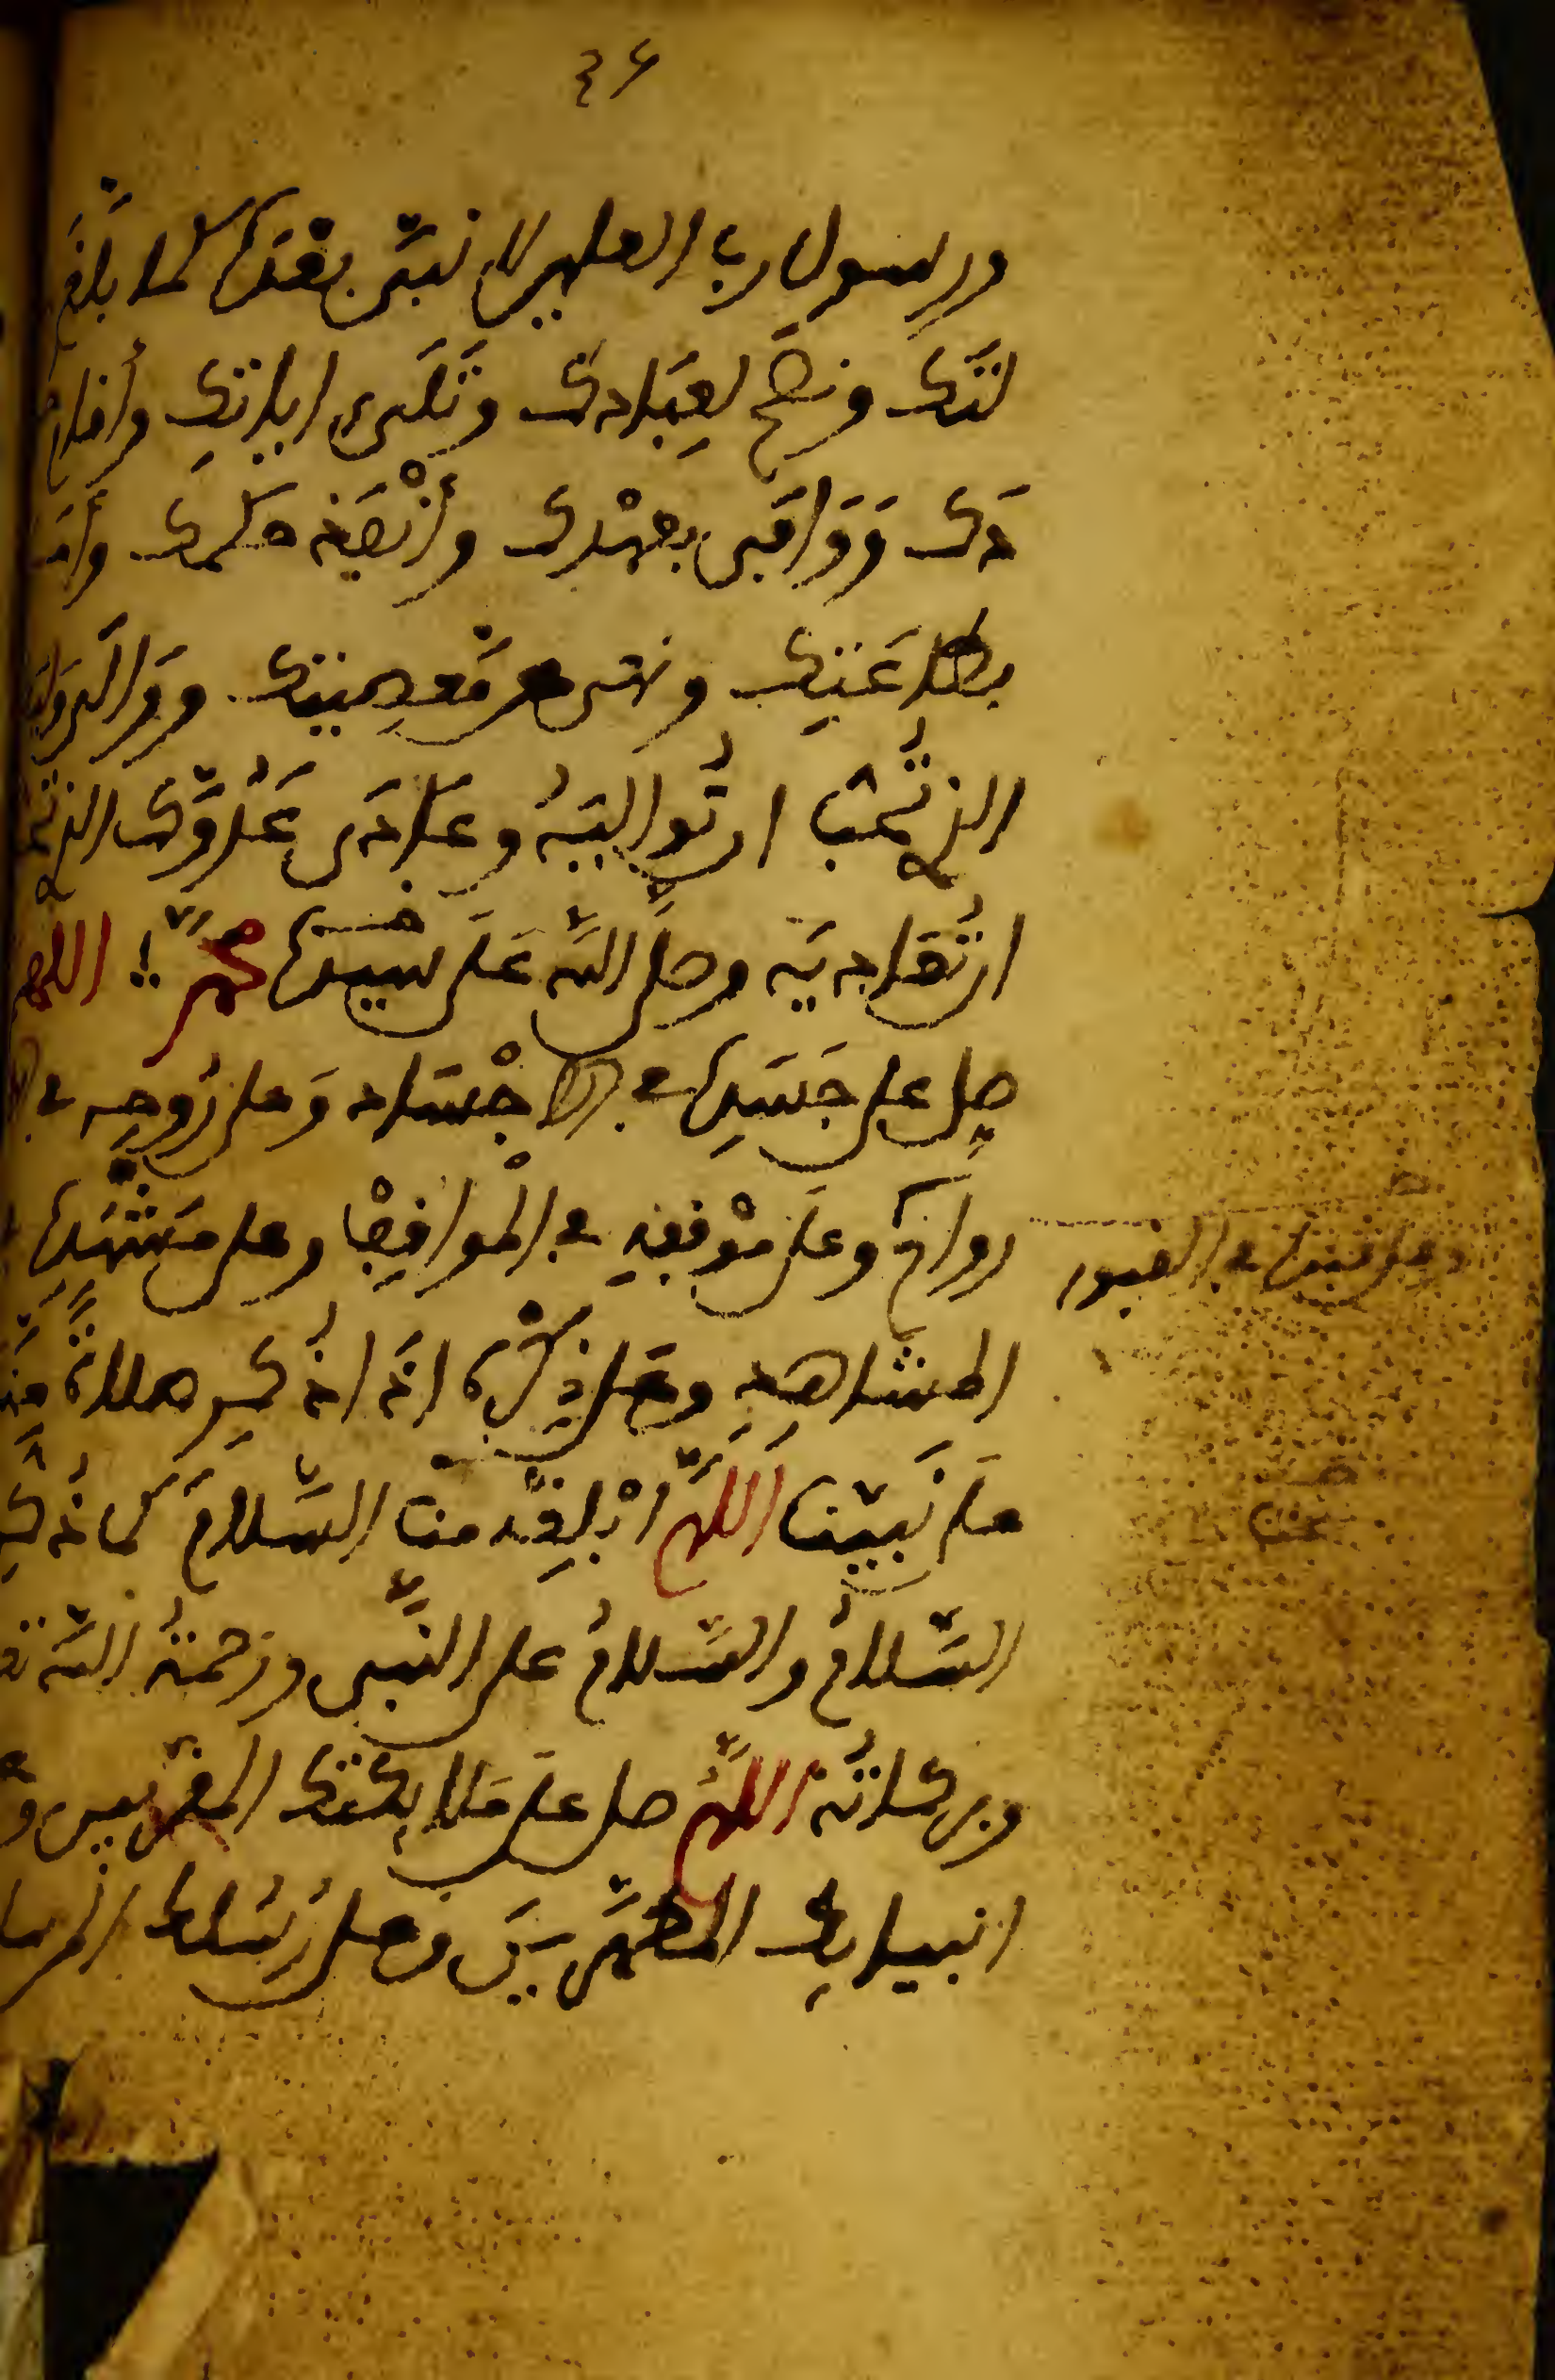 ٤٦
ورسول رب العلمين لا نبي بعده كما بلغ
لتك ونصح لعبادك وتلى اياتك وأقام
دك ووافى بعهدك وأنفذ حكمك وأمر
بطاعتك ونهى عن معصيتك ووالى وليك
الذي تحب ان تواليه وعادى عدوك الذي
ان تعاديه وصلى الله على سيدنا محمد اللهم
صل على جسده في الاجساد وعلى روحه في
رواح وعلى موقفه في المواقف وعلى مشهده
وعلى قبره في القبور
المشاهد وعلى ذكره اذا ذكر صلاة
على نبينا اللهم ابلغه منا السلام كما ذكر
السلام والسلام على النبي ورحمة الله
وبركاته اللهم صل على ملايكتك المقربين و
انبيايك المطهرين وعلى رسلك